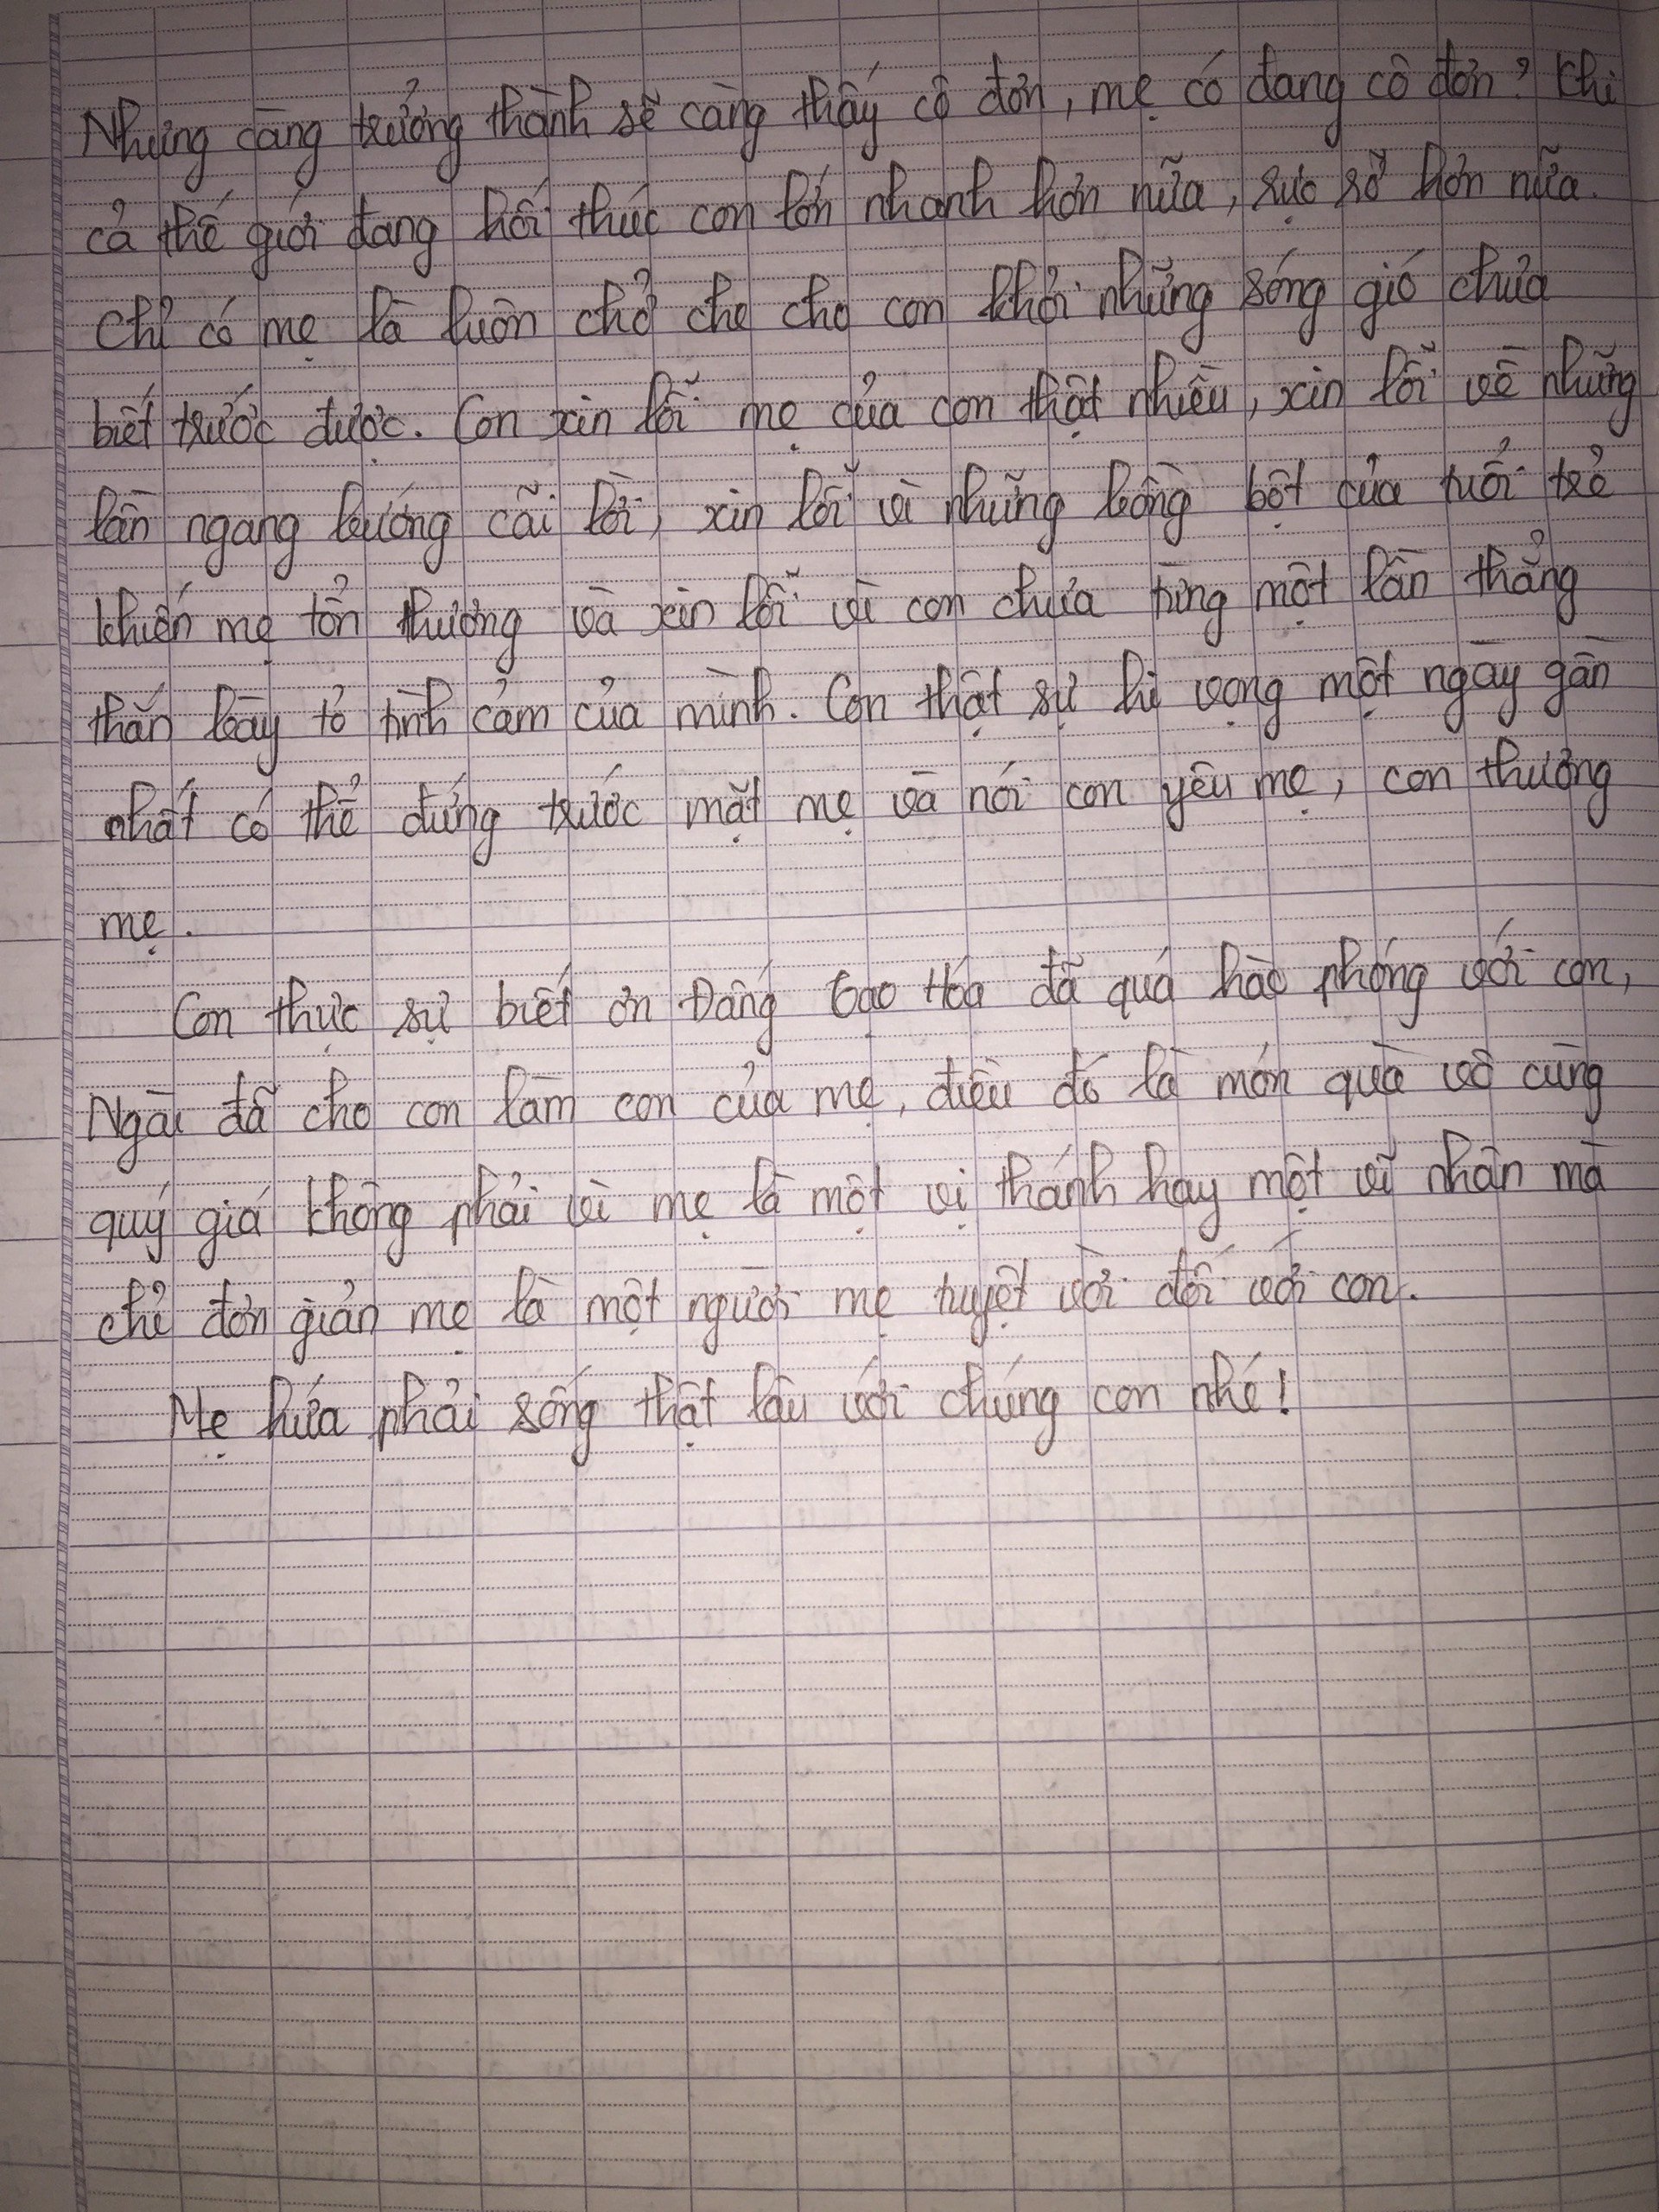 Nhưng càng trưởng thành sẽ càng thấy cô đơn, mẹ có đang cô đơn? Khi
cả thế giới đang hối thúc con lớn nhanh hơn nữa, rực rỡ hơn nữa.
Chỉ có mẹ là luôn chở che cho con khỏi những sóng gió chưa
biết trước được. Con xin lỗi mẹ của con thật nhiều, xin lỗi về những
lần ngang bướng cãi lời, xin lỗi vì những bồng bột của tuổi trẻ
khiến mẹ tổn thương và xin lỗi vì con chưa từng một lần thẳng
thắn bày tỏ tình cảm của mình. Con thật sự hi vọng một ngày gần
nhất có thể đứng trước mặt mẹ và nói con yêu mẹ, con thương
mẹ.
Con thực sự biết ơn Đấng Tạo Hóa đã quá hào phóng với con,
Ngài đã cho con làm con của mẹ, điều đó là món quà vô cùng
quý giá không phải vì mẹ là một vị thánh hay một vĩ nhân mà
chỉ đơn giản mẹ là một người mẹ tuyệt vời đối với con.
Mẹ hứa phải sống thật lâu với chúng con nhé!